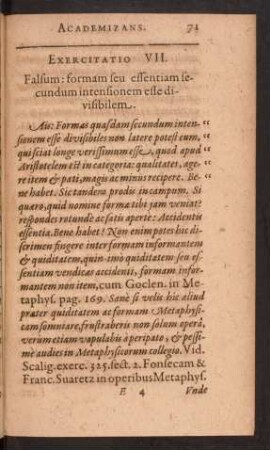 ACADEMIZANS. 71
EXERCITATIO VII.
Falsum: formam seu essentiam se-
cundum intensionem esse di-
visibilem.
Ais: Formas quasdam secundum inten-"
sionem esse divisibiles non latere potest eum, "
qui sciat longe verissimum esse, quod apud "
Aristotelem est in categoria: qualitates, age- "
re item & pati, magis ac minus recipere. Be-"
ne habet. Sic tandem prodis in campum. Si
quaro, quid nomine forma tibi jam veniat?
respondes rotunde ac satis aperte: Accidentis
essentia. Bene habet! Non enim potes hic di-
scrimen fingere inter formam informantem
& quiditatem, quin-imò quiditatem seu es-
sentiam vendicas accidenti, formam infor-
mantem non item, cum Goclen. in Me-
taphys. pag. 169. Sanè si velis hic aliud
præter quiditatem ac formam Metaphysi-
cam somniare, frustraberis non solum operâ,
verum etiam vapulabis à peripato, & pessi-
me audies in Metaphysicorum collegio. Vid.
Scalig. exerc. 325. sect. 2. Fonsecam &
Franc. Suaretz in operibus Metaphys.
E 4 Vnde